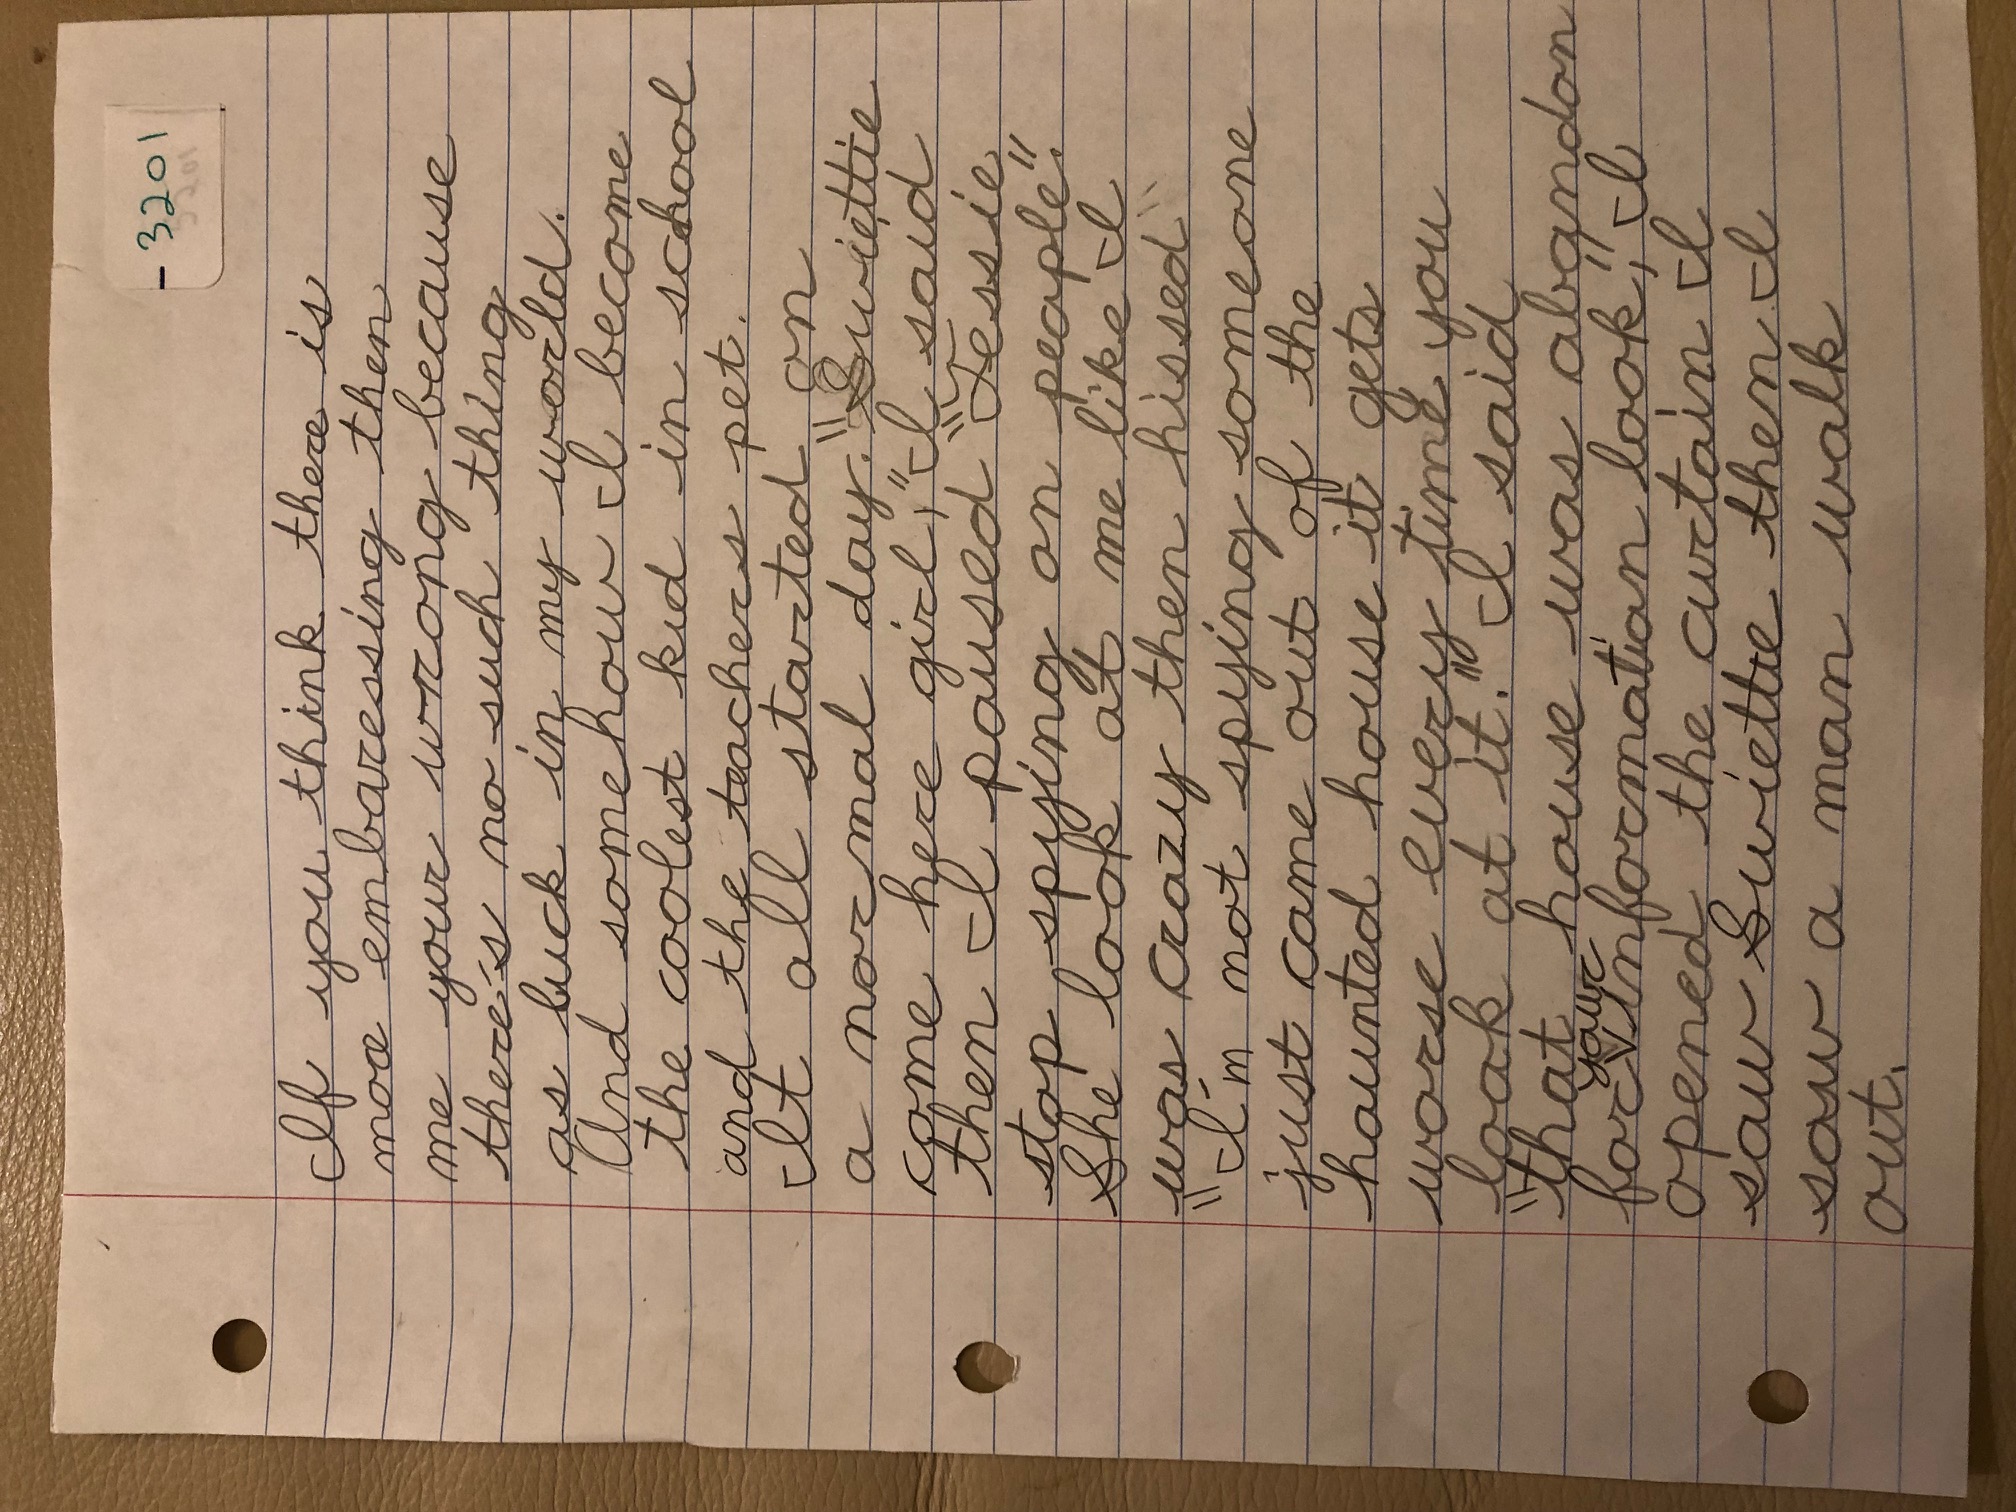 - 3201
If you think there is
more embaressing then
me your wrong because
there's no such thing
as luck in my world.
And somehow I become
the coolest kid in school
and the teachers pet.
It all started on
a normal day. "Swiettie
come here girl," I said
then I paused "Tessie
stop spying on people".
She look at me like I
was crazy then hissed
"I'm not spying someone
just came out of the
haunted house it gets
worse every time you
look at it." I said
"that house was abandon
for your information look," I
opened the curtain I
saw Swiettie then I
saw a man walk
out.